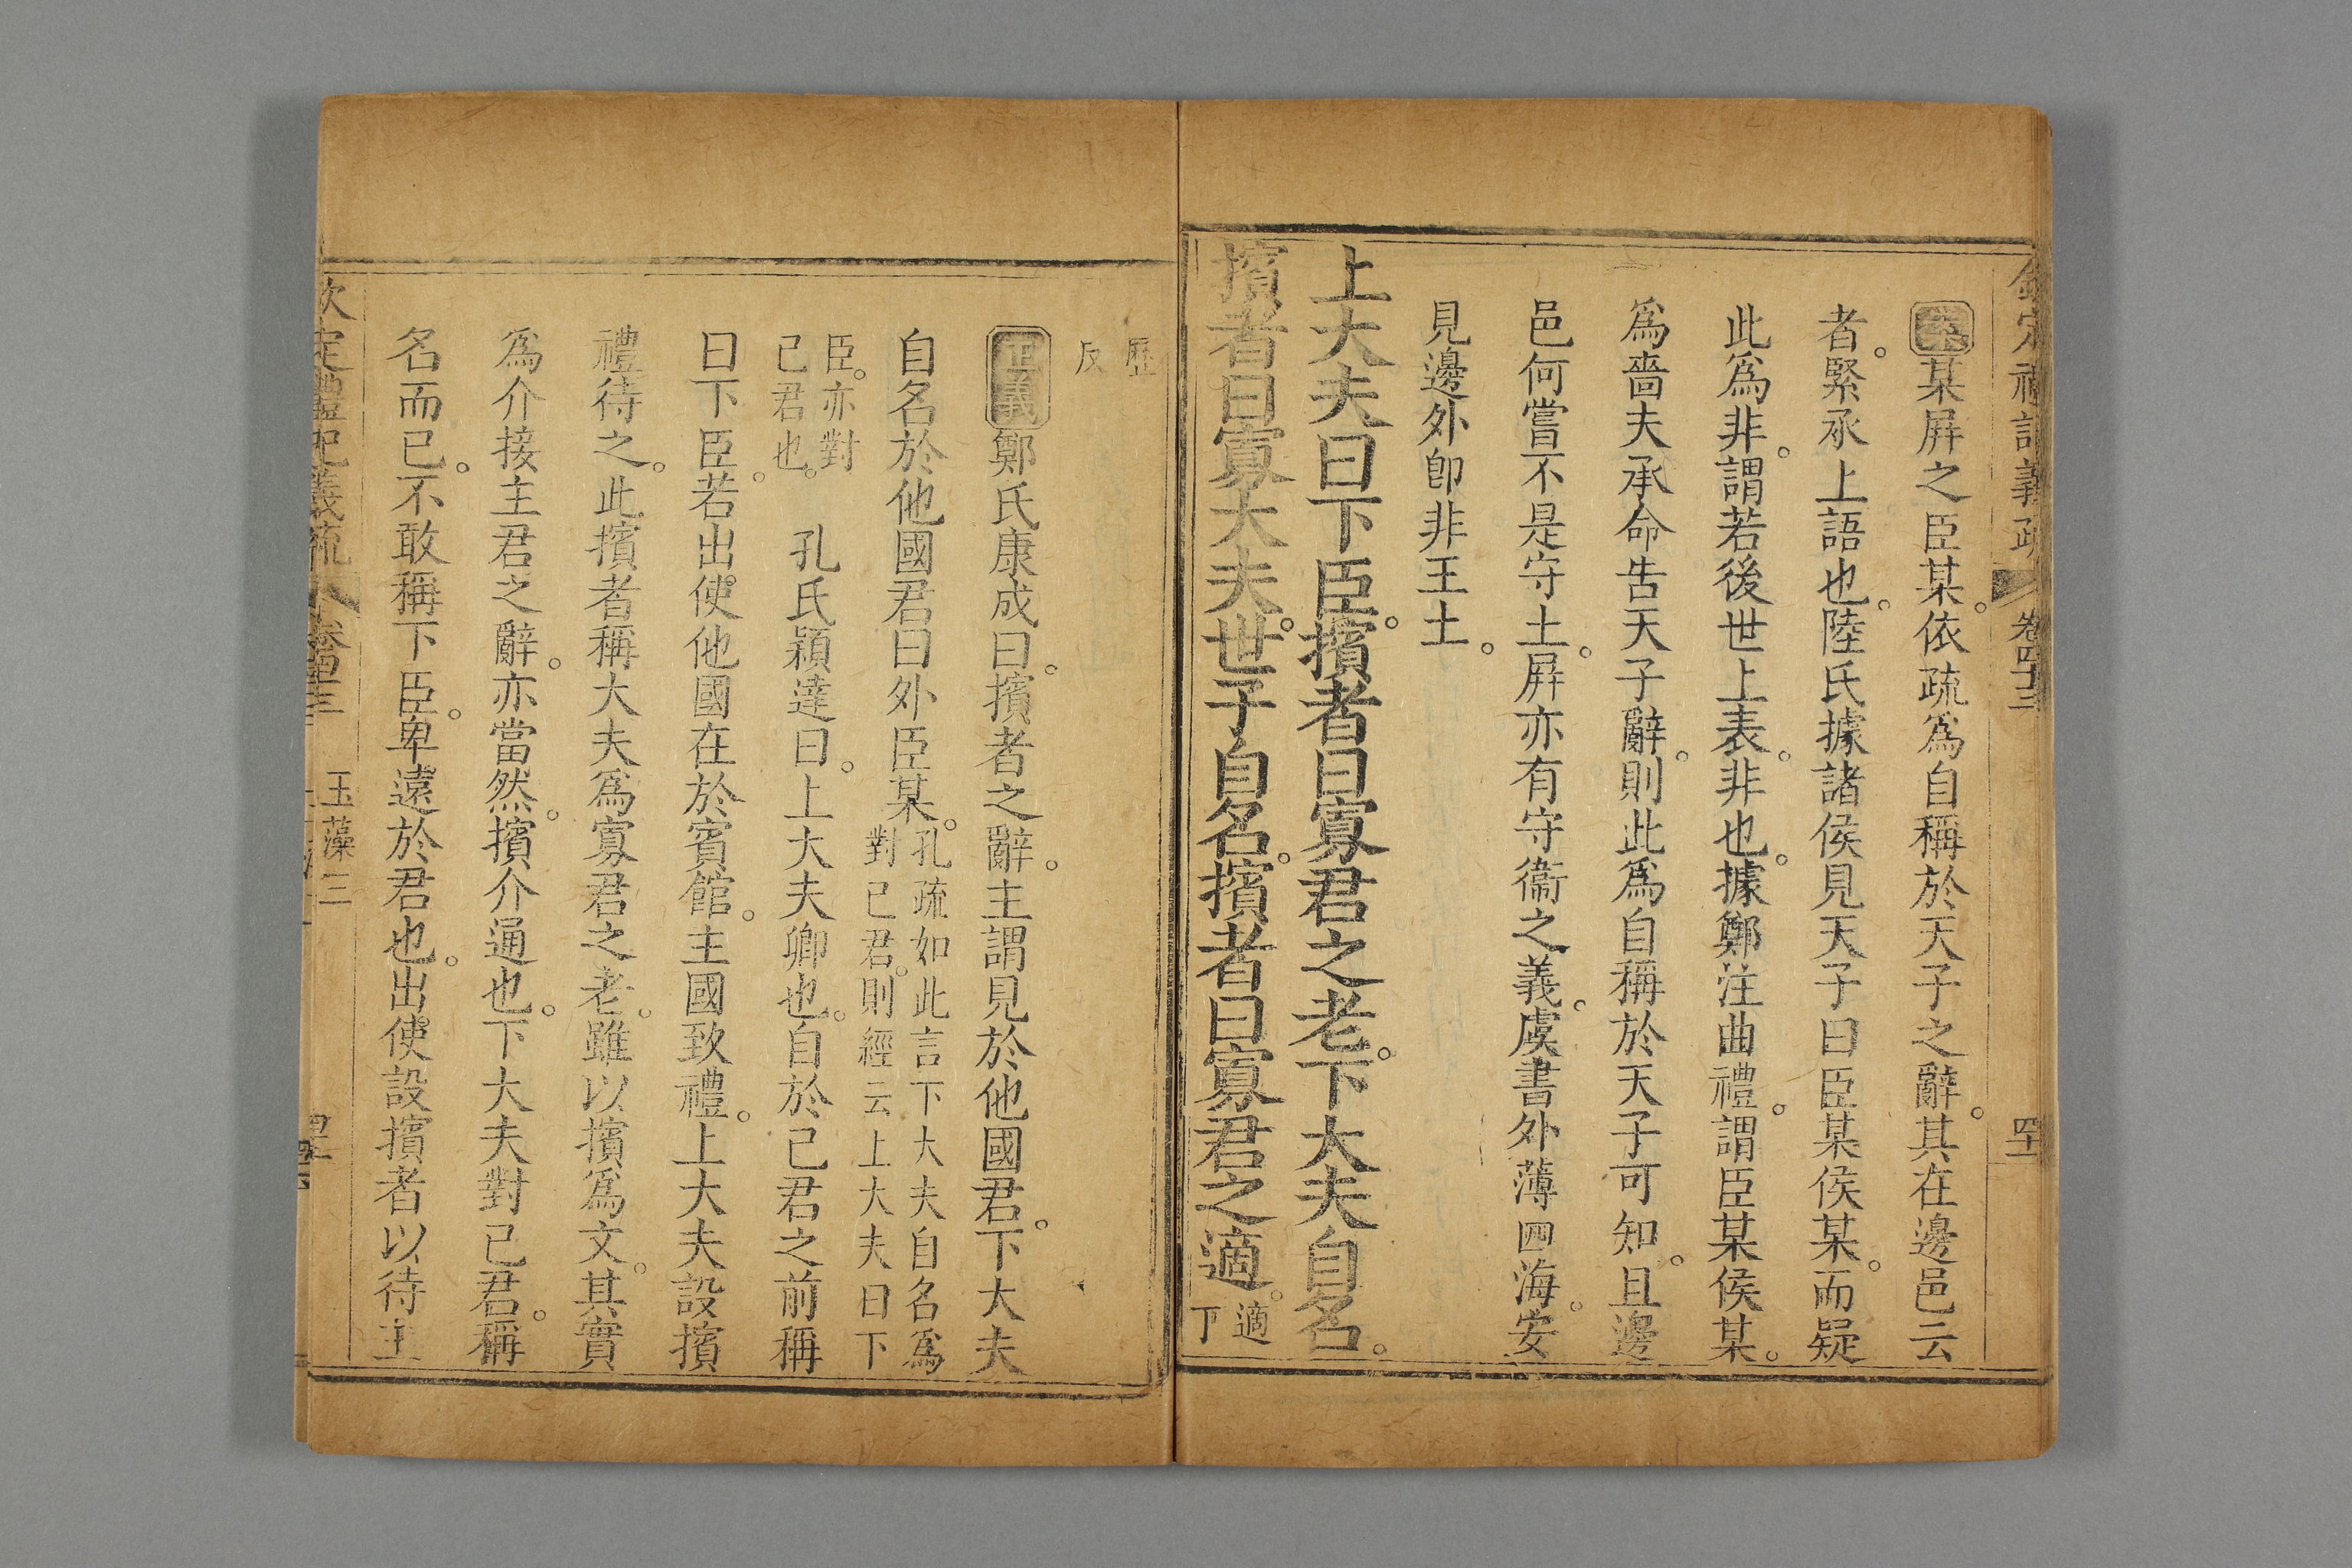 欽定禮記義疏 卷四十三 四十二
案某屏之臣某。依疏為自稱於天子之辭。其在邊邑云
者。緊承上語也。陸氏據諸侯見天子曰臣某侯某。而疑
此為非。謂若後世上表。非也。據鄭注曲禮。謂臣某侯某。
為嗇夫承命告天子辭。則此為自稱於天子可知。且邊
邑何嘗不是守土。屏亦有守衞之義。虞書外薄四海。安
見邊外卽非王土。
上大夫曰下臣。擯者曰寡君之老。下大夫自名。
擯者曰寡大夫。世子自名。擯者曰寡君之適。適
丁
歷
反
正義鄭氏康成曰。擯者之辭。主謂見於他國君。下大夫
自名於他國君曰外臣某。孔疏如此言下大夫自名為
對己君。則經云上大夫曰下
臣。亦對
己君也。 孔氏穎達曰。上大夫卿也。自於己君之前稱
曰下臣。若出使他國在於賓館。主國致禮。上大夫設擯
禮待之。此擯者稱大夫為寡君之老。雖以擯為文。其實
為介接主君之辭。亦當然。擯介通也。下大夫對己君。稱
名而已。不敢稱下臣。卑遠於君也。出使設擯者以待主
欽定禮記義疏 卷四十三 玉藻三